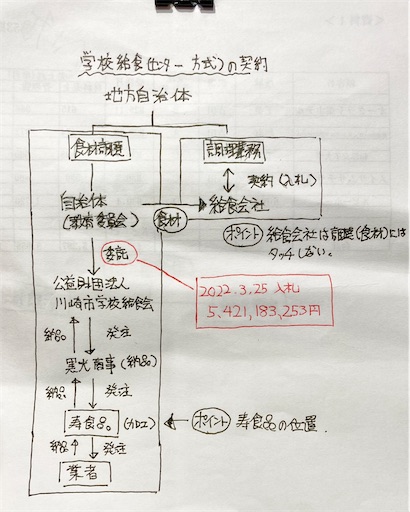 学校給食(センター方式)の契約
地方自治体
食材調達
調理業務
契約(入札)
自治体
(教育委員会)
食材
給食会社
ポイント 給食会社は調達(食材)には
タッチしない。
委託
公益財団法人
川崎市学校給食会
2022.3.25 入札
5,421,183,253円
納品 発注
黒光商事(納品)
納品 発注
寿食品(加工)
ポイント 寿食品の位置.
納品 発注
業者